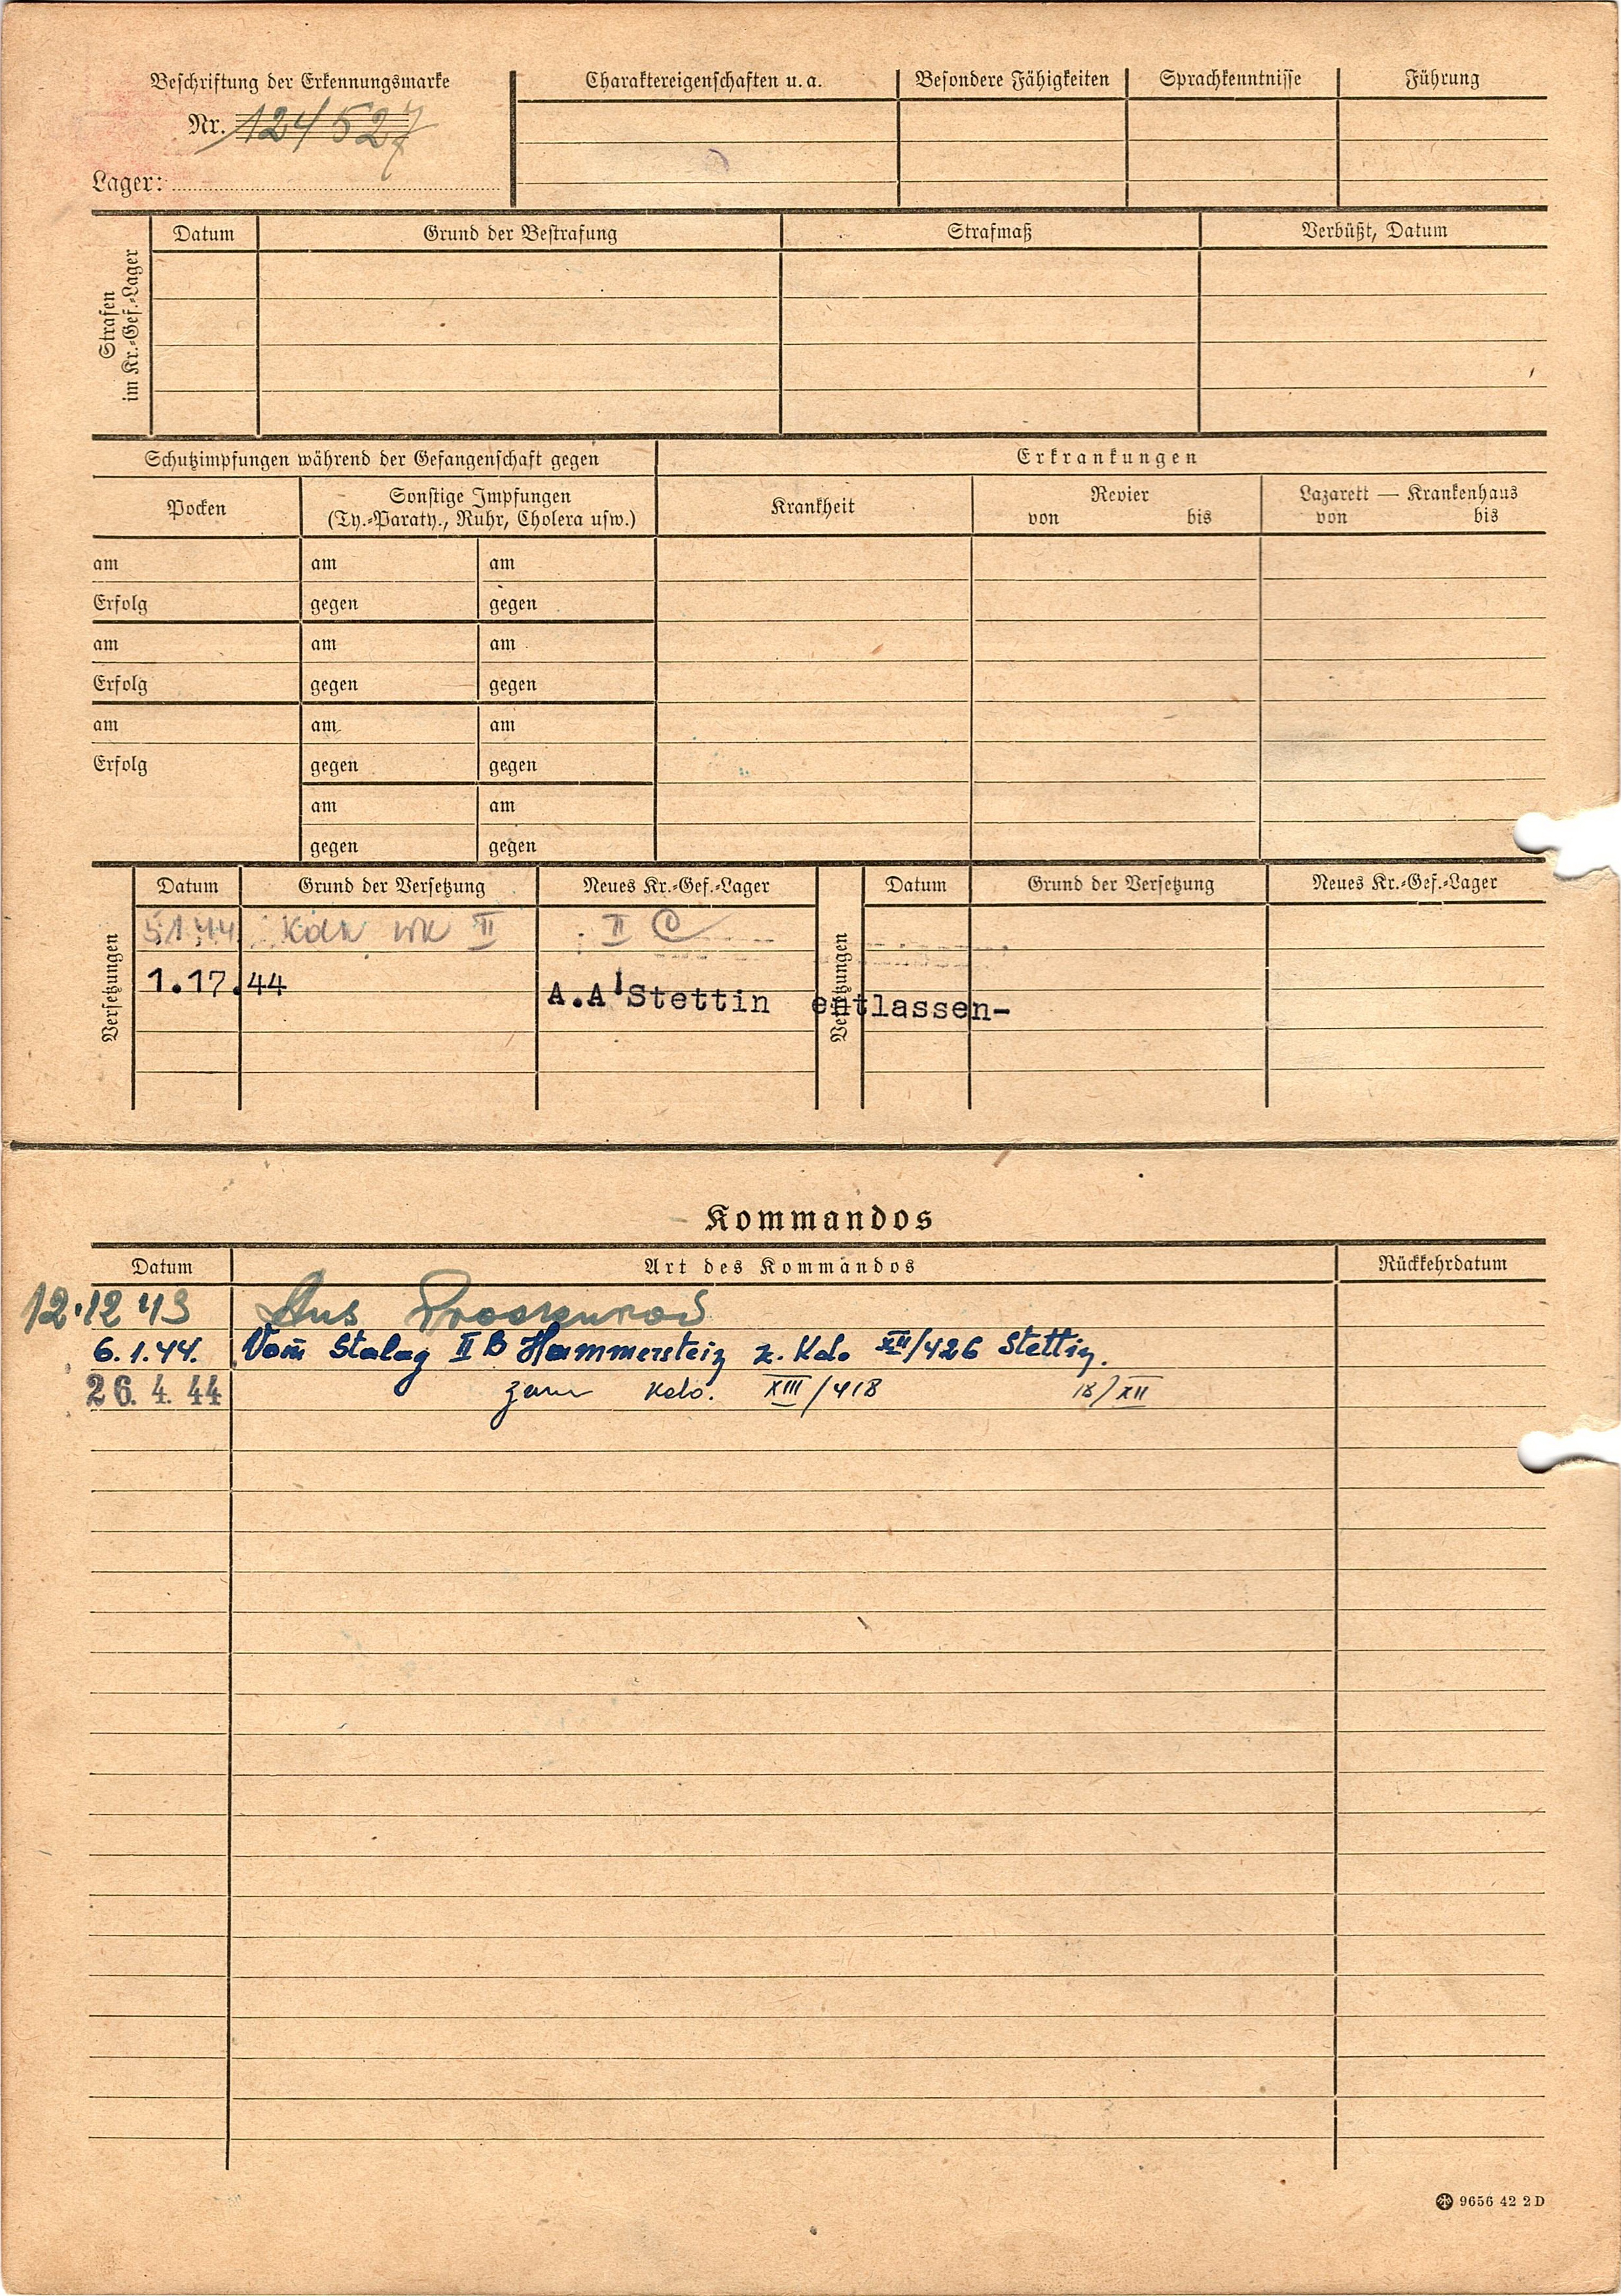 Beschriftung der Erkennungsmarke
Nr. 124527
Lager:
Charaktereigenschaften u. a.
Besondere Fähigkeiten
Sprachkenntnisse
Führung
Strafen
im Kr.-Gef.-Lager
Datum
Grund der Bestrafung
Strafmaß
Verbüßt, Datum
Schutzimpfungen während der Gefangenschaft gegen
Erkrankungen
Pocken
Sonstige Impfungen
(Ty.-Paraty., Ruhr, Cholera usw.)
Krankheit
Revier
von bis
Lazarett — Krankenhaus
von bis
am am am
Erfolg gegen gegen
am am am
Erfolg gegen gegen
am am am
Erfolg gegen gegen
am am
gegen gegen
Versetzungen
Datum Grund der Versetzung Neues Kr.-Gef.-Lager
Versetzungen
Datum Grund der Versetzung Neues Kr.-Gef.-Lager
5.1.44 II II
1.17.44 A.A'Stettin entlassen-
Kommandos
Datum Art des Kommandos Rückkehrdatum
12.12 43 Aus
6.1.44. Vom Stalag II B Hammerstein z. Kdo XII/426 Stettin.
26. 4. 44 zum Kdo. XIII/418 18/XII
9656 42 2 D